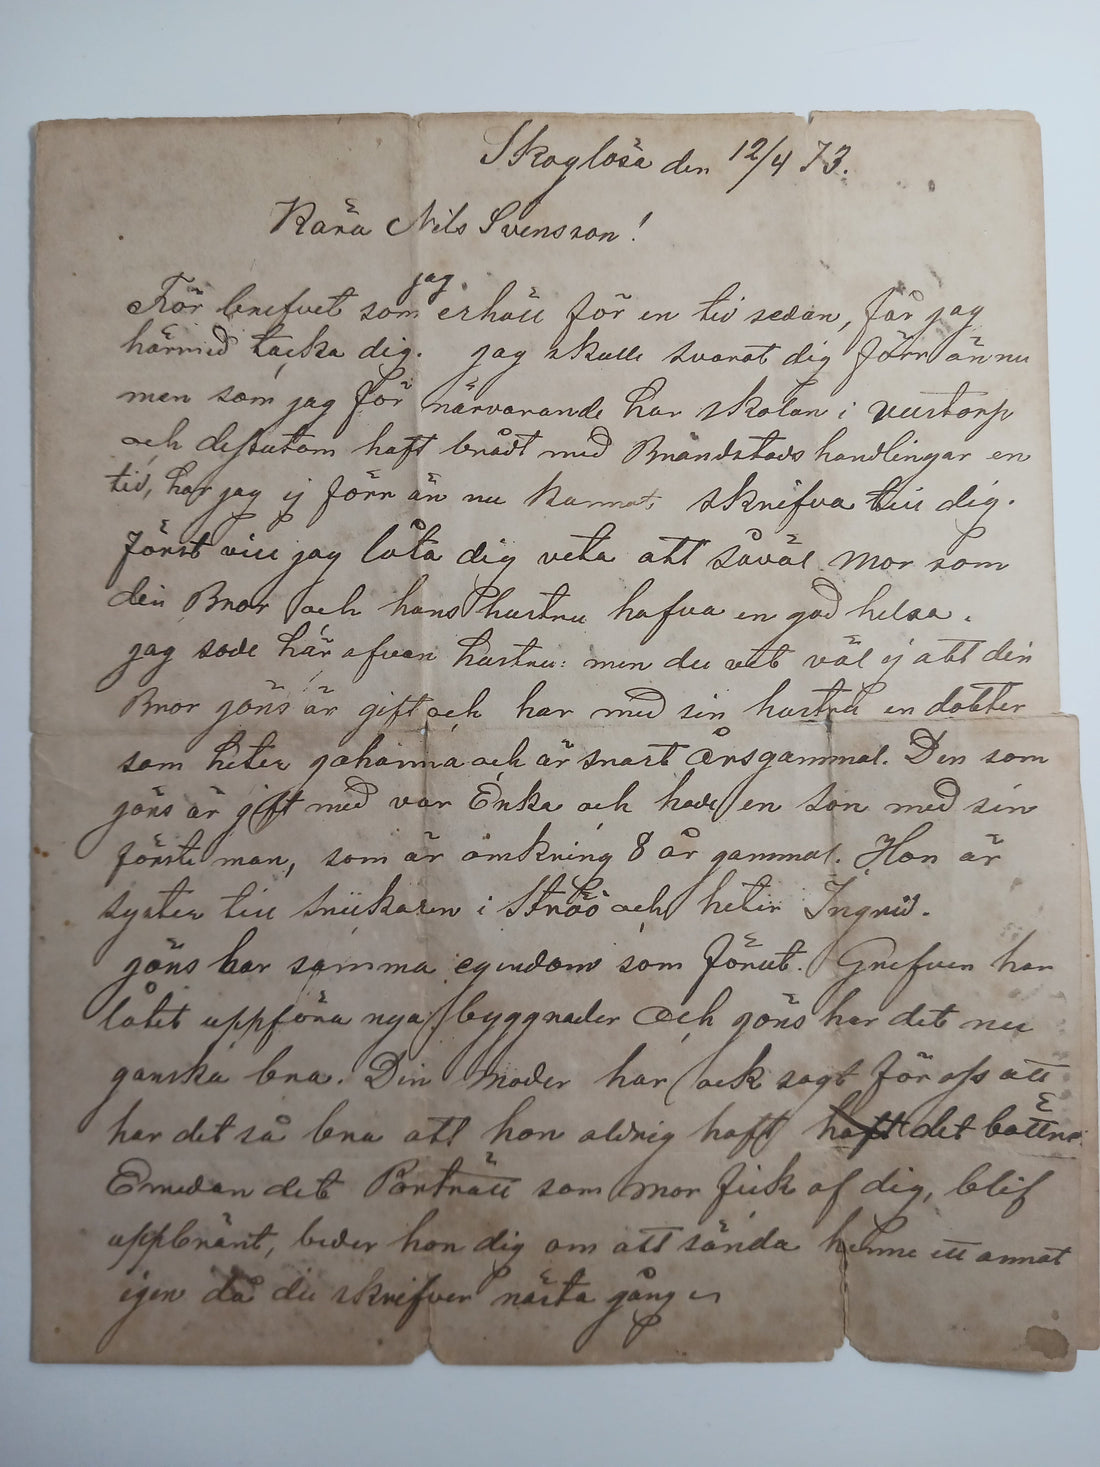 Skoglösa den 12/4 73.
Kära Nils Svensson!
För brefvet som jag erhöll för en tid sedan, får jag
härmed tacka dig. jag skulle svarat dig förr än nu
men som jag för närvarande har skolan i Vestorp
och dessutom haft brådt med Brandstods handlingar en
tid, har jag ej förr än nu kunnat skrifva till dig.
först vill jag låta dig veta att såväl mor som
din Bror och hans hustru hafva en god helsa.
jag sade här ofvan hustru: men du vet väl ej att din
Bror jöns är gift och har med sin hustru en dotter
som heter johanna och är snart årsgammal. Den som
jöns är gift med var Enka och hade en son med sin
förste man, som är omkring 8 år gammal. Hon är
syster till Snickaren i Ströö och heter Ingrid.
jöns har samma egendom som förut. Grefven har
låtit uppföra nya byggnader och jöns har det nu
ganska bra. Din Moder har ock sagt för oss att
har det så bra att hon aldrig haft haft det bättre
Emedan det Porträtt som mor fick af dig, blif
uppbränt, beder hon dig om att sända henne ett annat
igen då du skrifver nästa gång